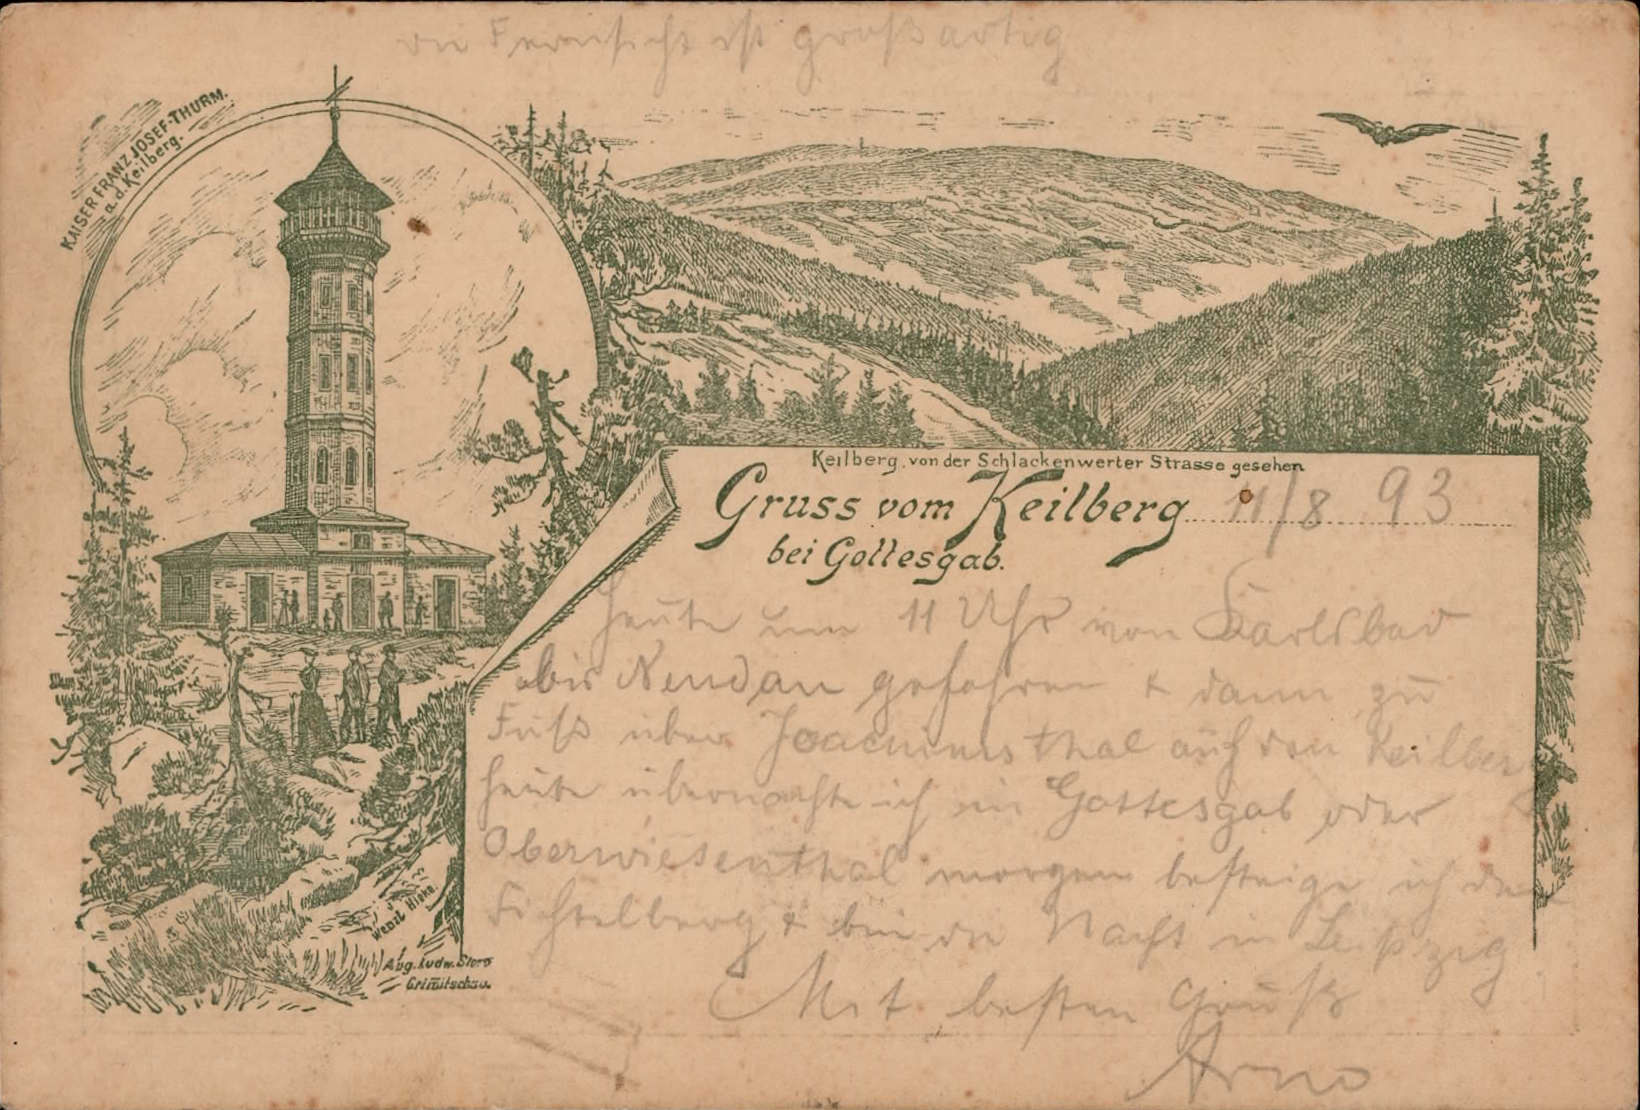 die Fernsicht ist großartig
KAISER FRANZ JOSEF-THURM.
a. d. Keilberg.
Keilberg, von der Schlackenwerter Strasse gesehen
Gruss vom Keilberg 11/8 93
bei Gottesgab.
Heute um 11 Uhr von Karlsbad
bis Neudau gefahren & dann zu
Fuß über Joachimsthal auf den Keilberg
heute übernachte ich in Gottesgab oder
Oberwiesenthal morgen besteige ich den
Fichtelberg & bin die Nacht in Leipzig
Mit besten Gruß
Arno
Wenzl
Aug. Ludw. Stero
Crimitschau.